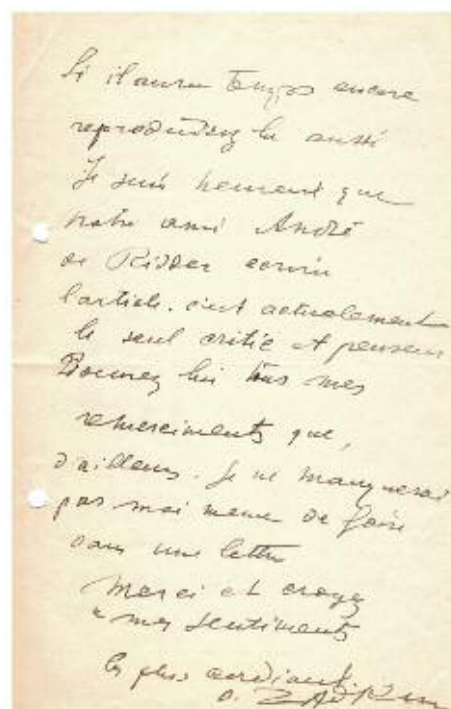 Si il aura temps encore
reproduisez la aussi
Je suis heureux que
notre ami André
de Ridder ecrira
l'article. c'est actuelement
le seul critic et penseur
Donnez lui tous mes
remerciments que,
d'ailleurs. Je ne manquerai
pas moi meme de faire
dans une lettre
Merci et croyez
a mes sentiments
les plus cordiaux.
O. ZADKine